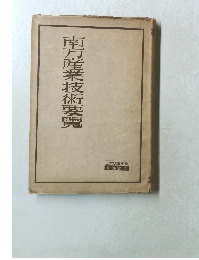 南方産業技術要覽